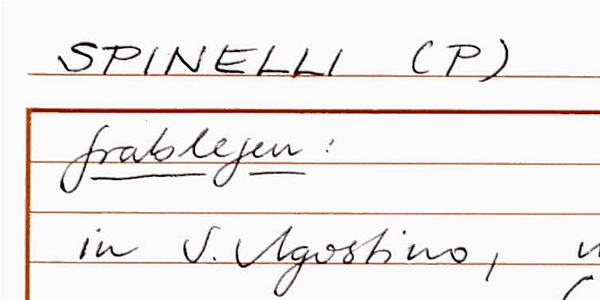 SPINELLI (P)
frablegen:
in S. Agostino,